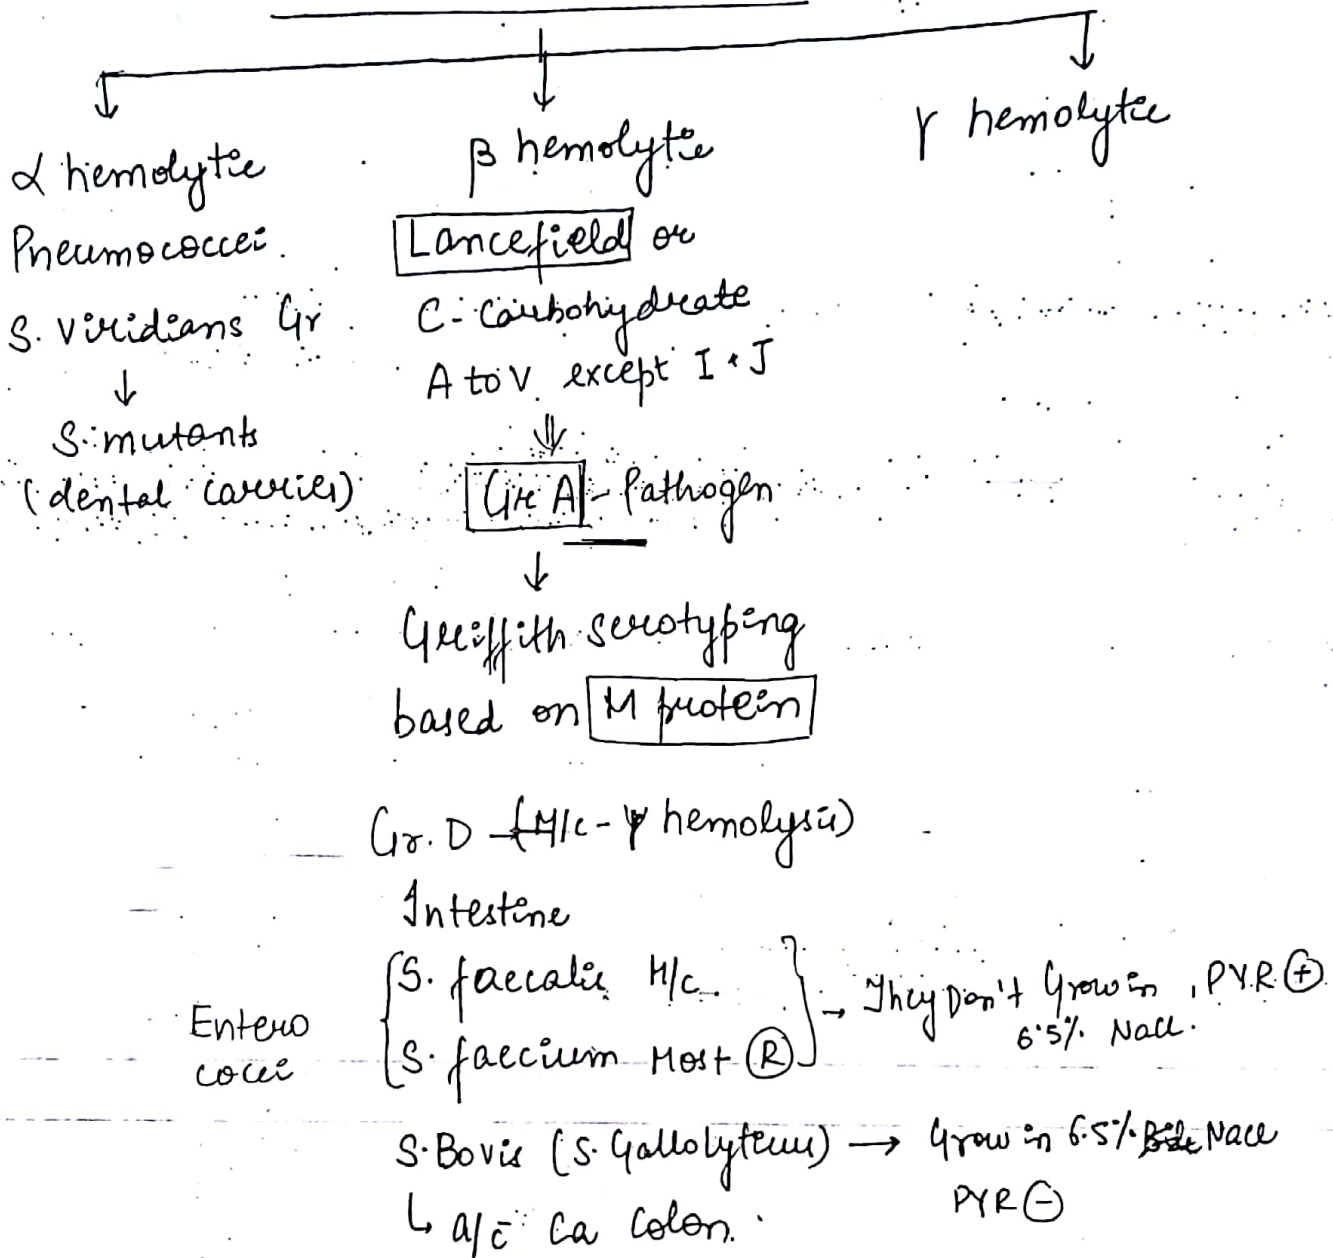 α hemolytic
β hemolytic
γ hemolytic
Pneumococcei.
S. Viridians Gr.
↓
S. mutants
(dental carries)
Lancefield or
C-Carbohydrate
A to V except I & J
⇓
Gr A - Pathogen
↓
Griffith serotyping
based on M protein
Gr. D (M/c - γ hemolysis)
Intestine
Entero
cocci
S. faecalis M/c
S. faecium Most Ⓡ
→ They Don't Grow in 6.5% Nacl. , PYR ⊕
S. Bovis (S. Gallolyticus) → Grow in 6.5% Nacl
PYR ⊖
↳ a/c̄ Ca Colon.